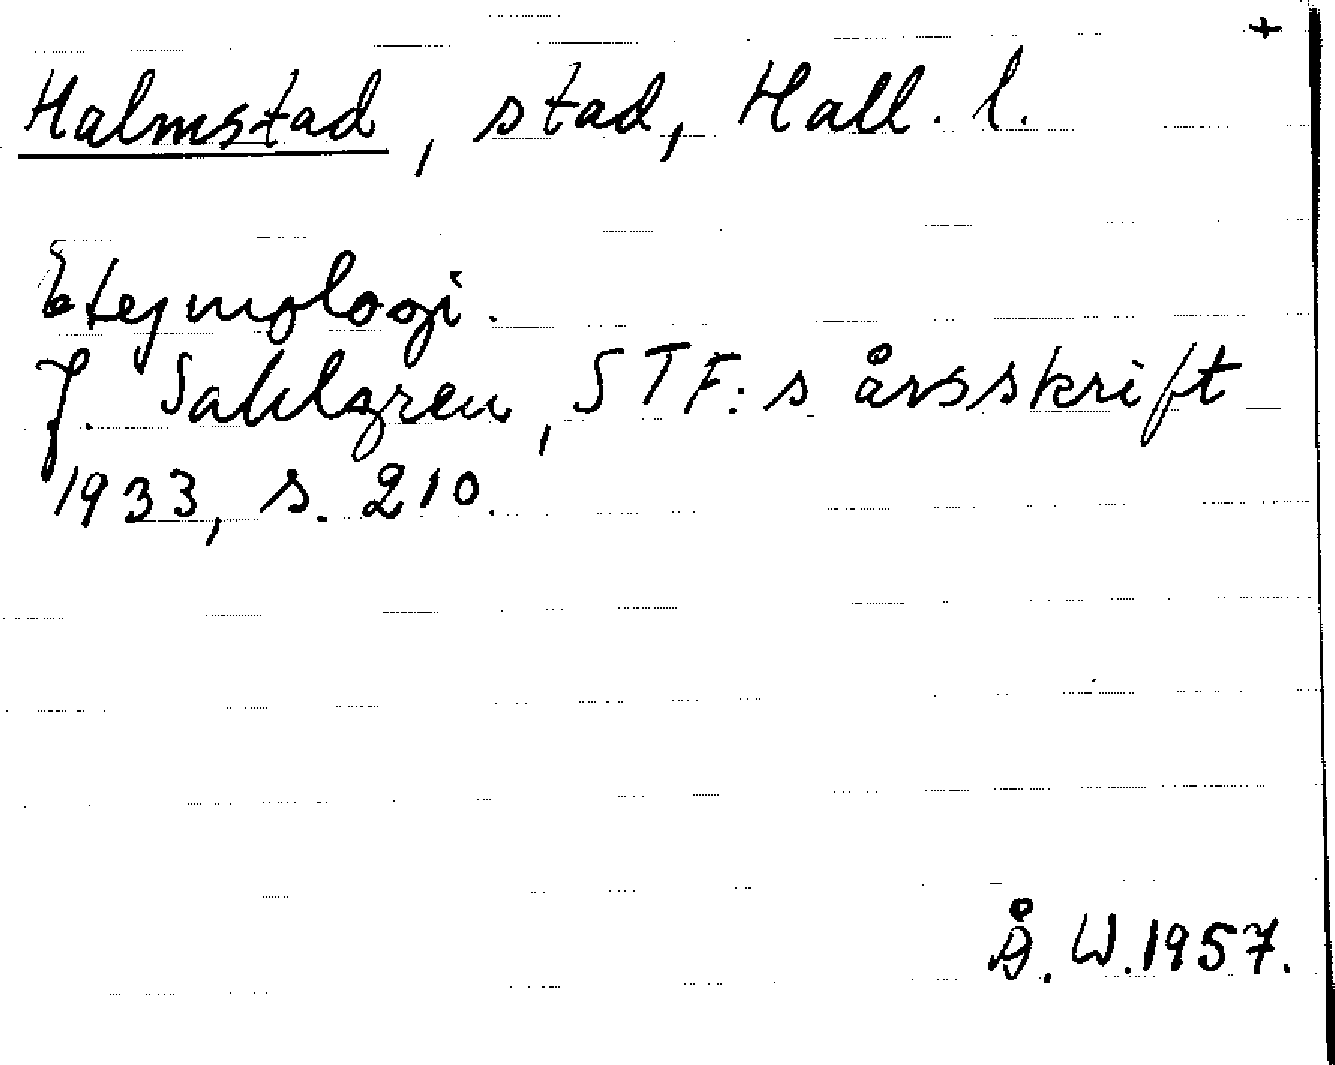 +
Halmstad, stad, Hall. l.
Etymologi.
J. Sahlgren, STF:s årsskrift
1933, s. 210.
Å. W. 1957.